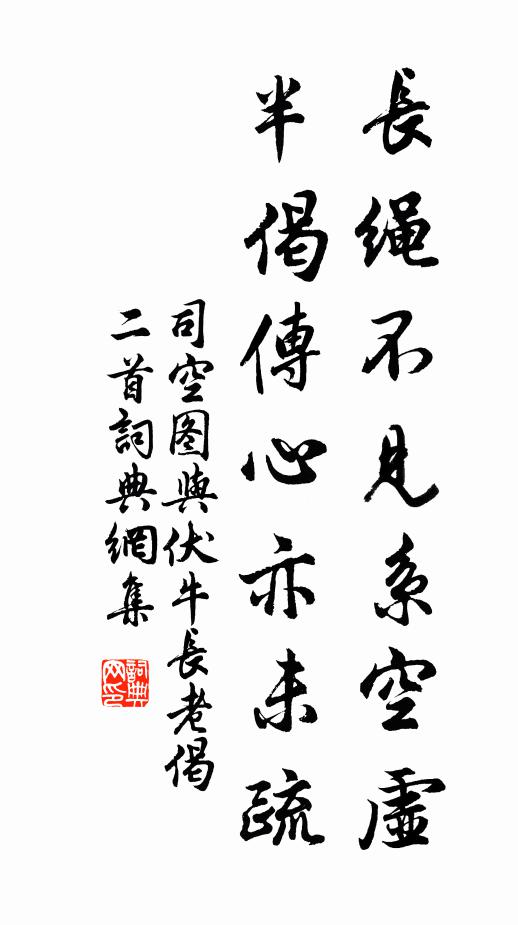 長繩不見系空虛
半偈傳心亦未疏
司空图與伏牛長老偈
二首詞典網集
詞典网印